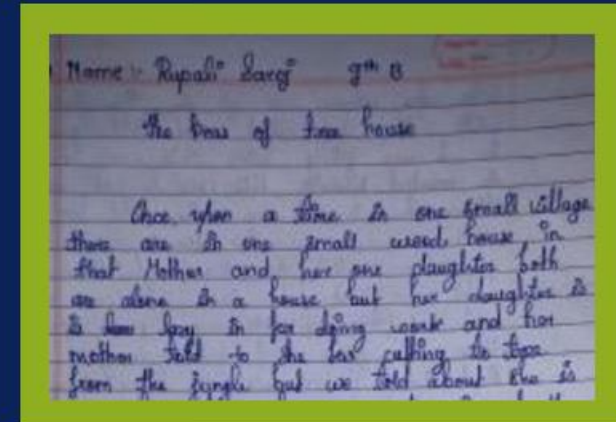 Name :- Rupali 9th B
the of tree house
Once upon a time in one small village
there are in one small wood house, in
that Mother and her one daughter both
are alone in a house but her daughter is
is lazy in for doing work and her
mother told to the for cutting to tree
from the jungle but we told about she is